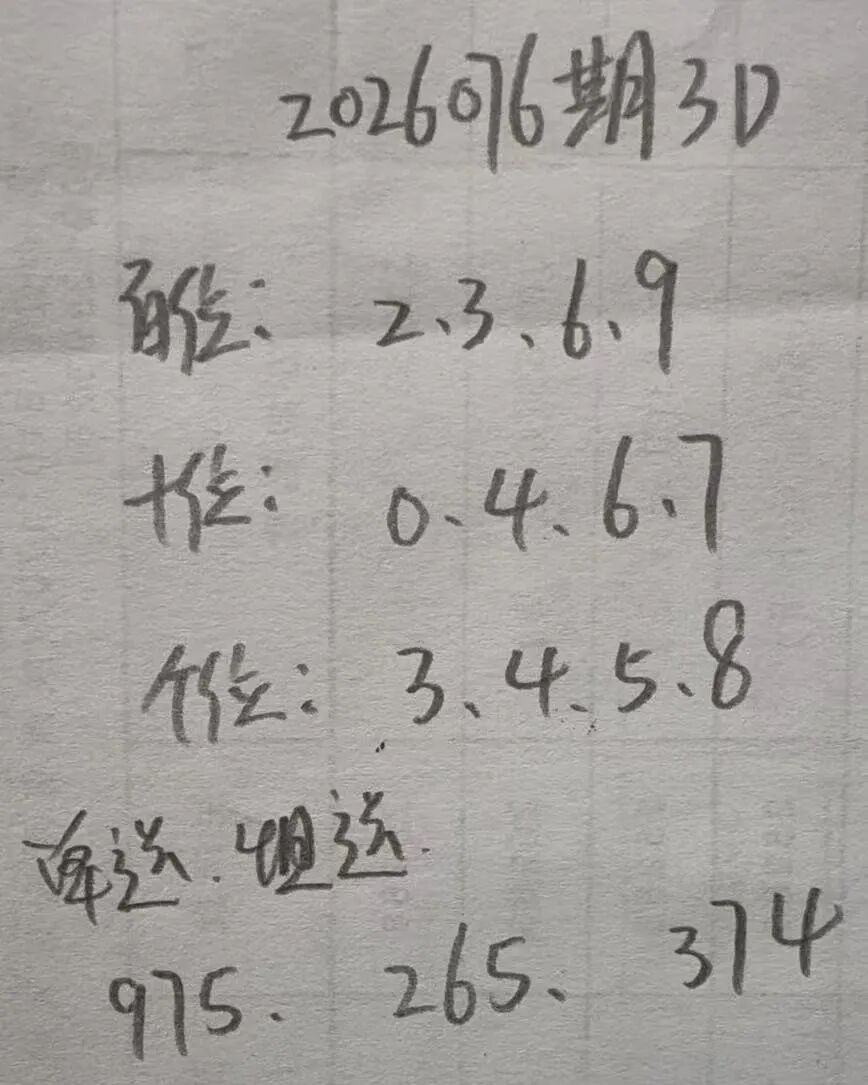 2026076期3D
百位: 2、3、6、9
十位: 0、4、6、7
个位: 3、4、5、8
单选.组选.
975. 265、 374